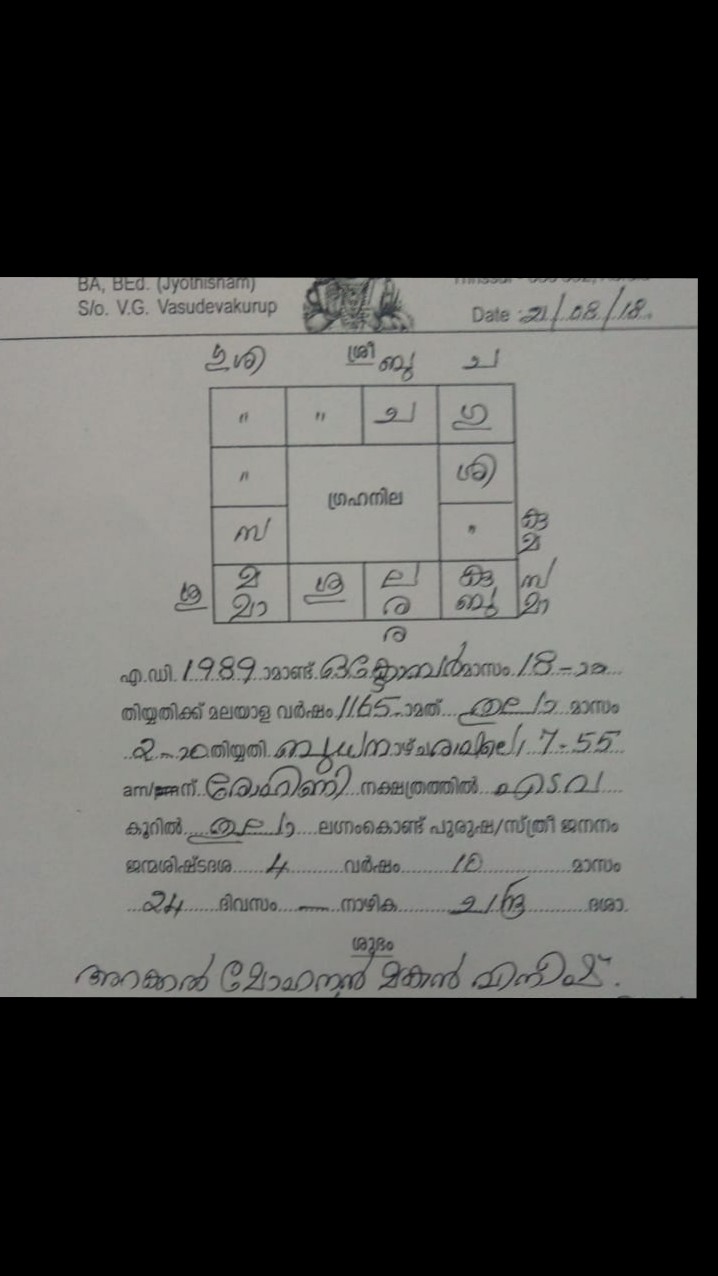 BA, BEd. (Jyothisham)
S/o. V.G. Vasudevakurup
Date : 21/08/18
ശ്രീ ബു ച
" " ച ഗു
" ഗ്രഹനില ശി
സ " കു മ
ശു മ മാ ശു ല ര കു ബു സ മാ
ര
എ.ഡി. 1989 ാമാണ്ട് ഒക്ടോബർ മാസം 18-ാം
തിയ്യതിക്ക് മലയാള വർഷം 1165-ാമത് തുലാ മാസം
2-ാം തിയ്യതി ബുധനാഴ്ച രാവിലെ 7-55
am/pm ന് രോഹിണി നക്ഷത്രത്തിൽ എടവ
കൂറിൽ തുലാ ലഗ്നംകൊണ്ട് പുരുഷ/സ്ത്രീ ജനനം
ജന്മശിഷ്ടദശ 4 വർഷം 10 മാസം
24 ദിവസം — നാഴിക ചന്ദ്ര ദശാ.
ശുഭം
അറക്കൽ മോഹനൻ മകൻ വിനീഷ്.